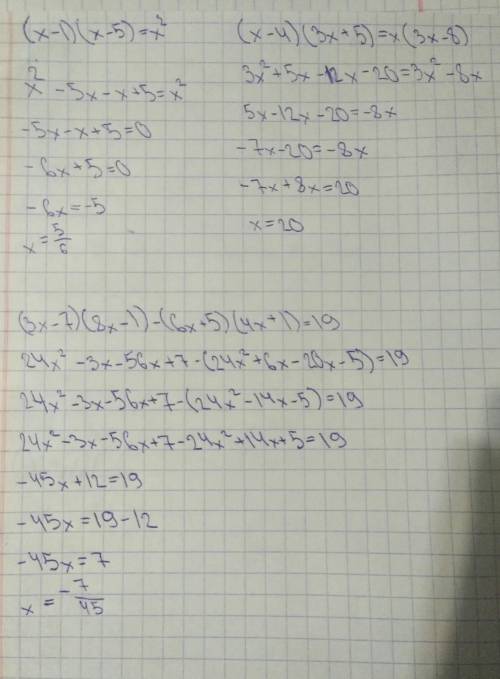 (x-1)(x-5)=x²
x²-5x-x+5=x²
-5x-x+5=0
-6x+5=0
-6x=-5
x=5/6
(x-4)(3x+5)=x(3x-8)
3x²+5x-12x-20=3x²-8x
5x-12x-20=-8x
-7x-20=-8x
-7x+8x=20
x=20
(3x-7)(8x-1)-(6x+5)(4x+1)=19
24x²-3x-56x+7-(24x²+6x-20x-5)=19
24x²-3x-56x+7-(24x²-14x-5)=19
24x²-3x-56x+7-24x²+14x+5=19
-45x+12=19
-45x=19-12
-45x=7
x=-7/45